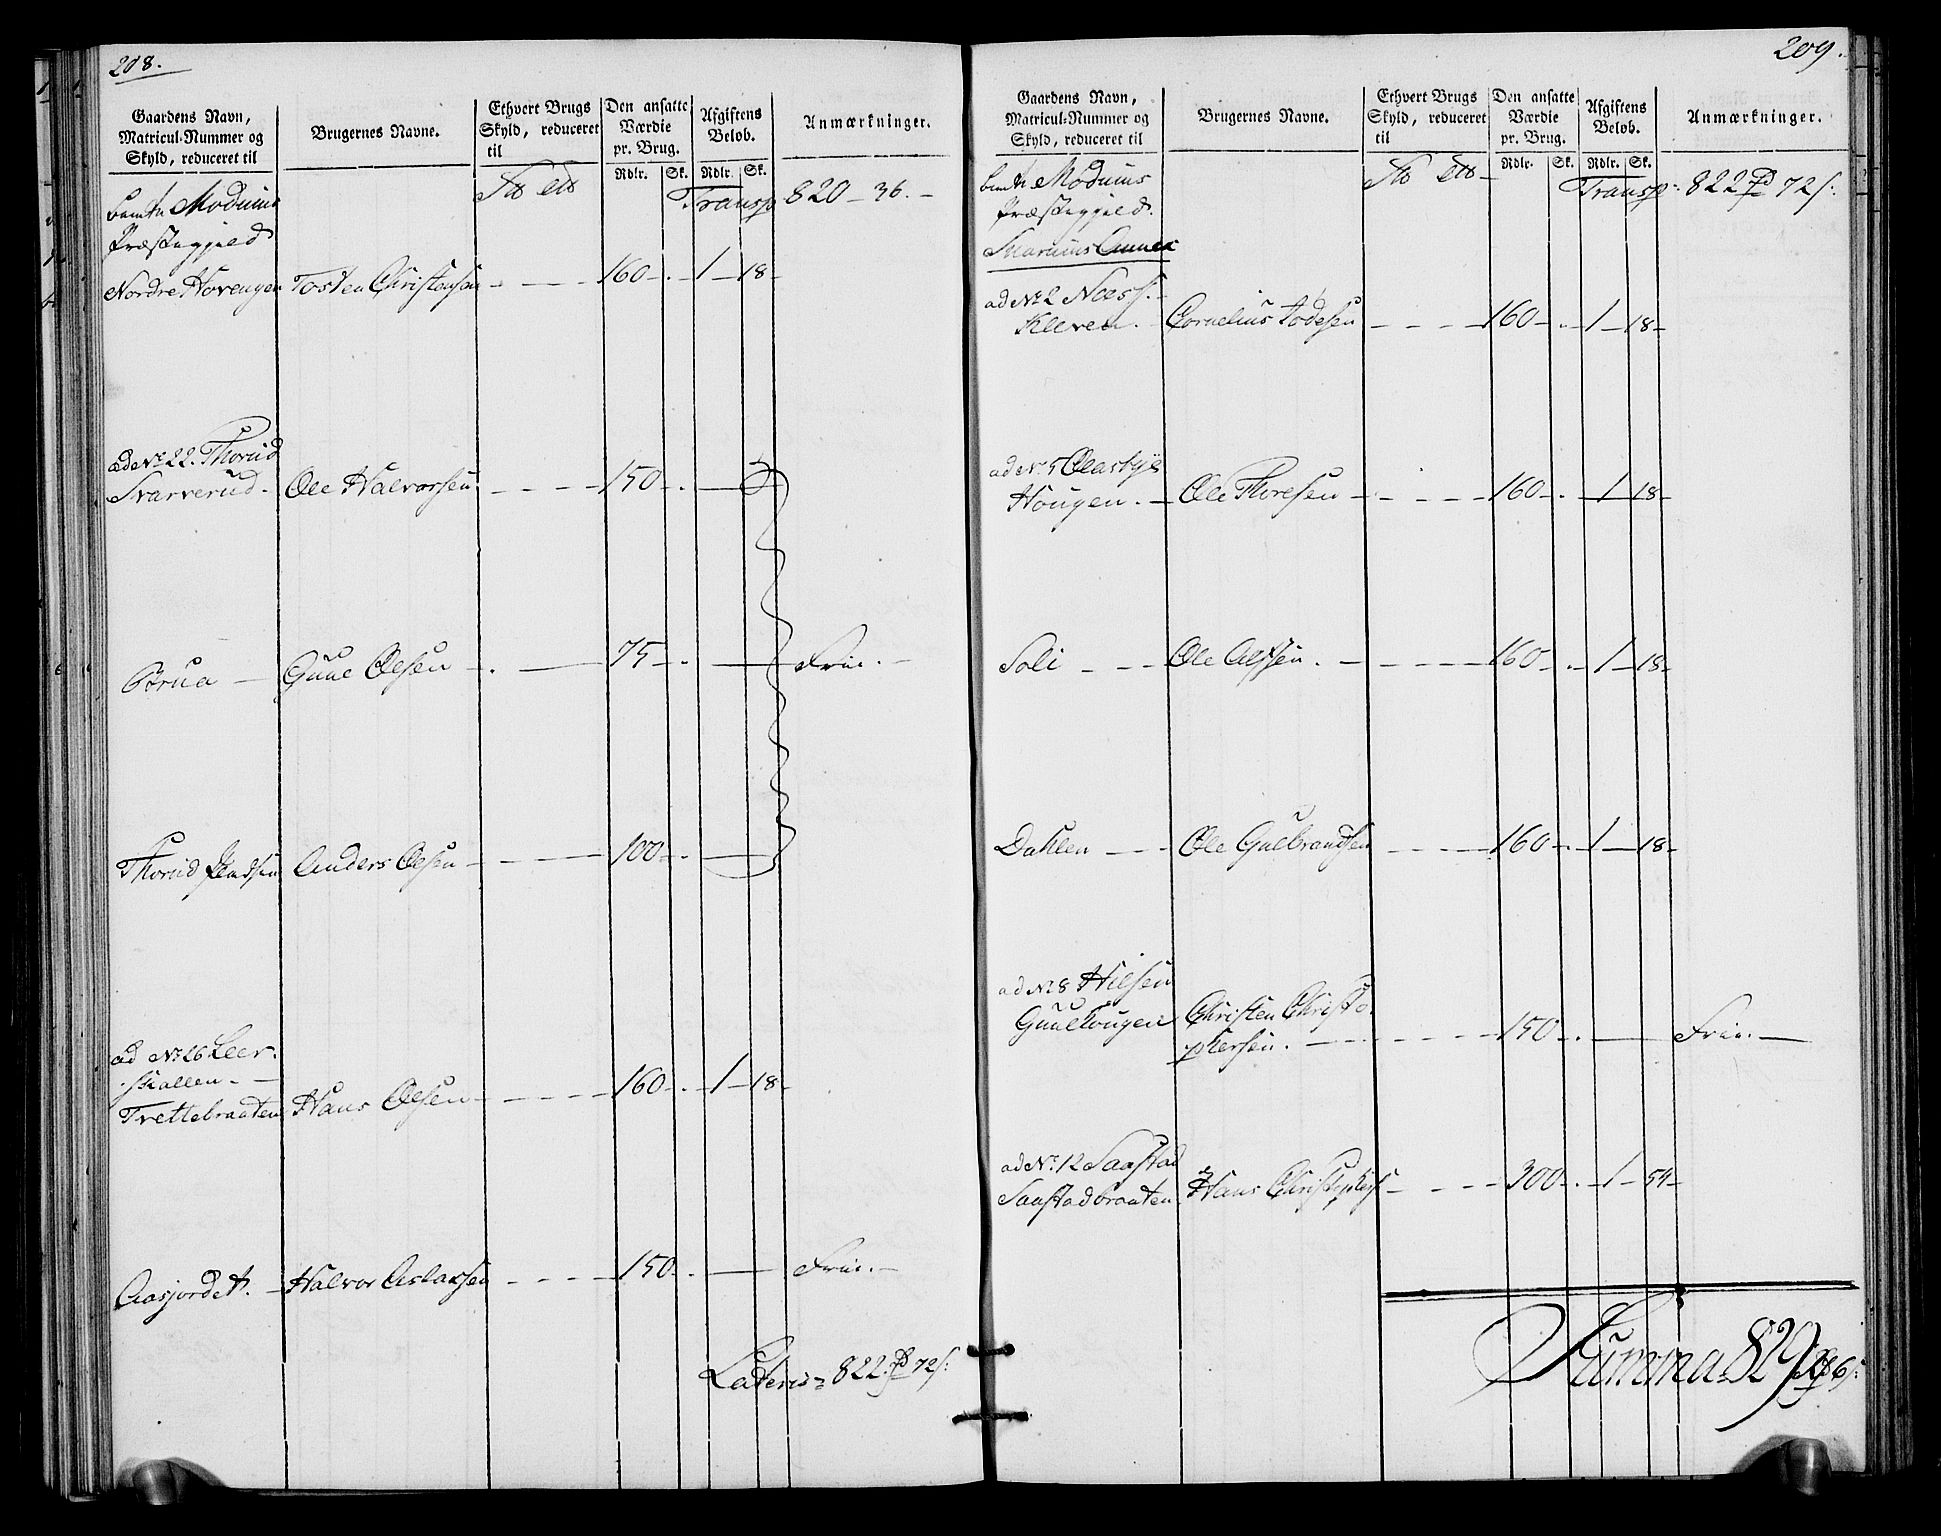 208.
Gaardens Navn,
Matricul-Nummer og
Skyld, reduceret til
Brugernes Navne.
Ethvert Brugs
Skyld, reduceret
til
Den ansatte
Værdie
pr. Brug.
Rdlr. Sk.
Afgiftens
Beløb.
Rdlr. Sk.
Anmærkninger.
Modums
Præstegjeld
Transp 820 - 36. -
Nordre Hovengen Tosten Christensen - - 160 - . - 1 - 18 -
ad No 22. Thorud
Svarverud - Ole Halvorsen - - - 150 - . -
Brua - Guul Olsen - . - 75 - . - Frie. -
Thorud Anders Olsen - - - 100 - . -
ad No 26 Leer
skallen - -
Trettebraaten Hans Olsen - - - 160 - . - 1 - 18 -
Aasjordet. - Halvor Aslaksen - - - 150 - . - Frie. -
Lateris = 822. 72 s:
209.
Gaardens Navn,
Matricul-Nummer og
Skyld, reduceret til
Brugernes Navne.
Ethvert Brugs
Skyld, reduceret
til
Den ansatte
Værdie
pr. Brug.
Rdlr. Sk.
Afgiftens
Beløb.
Rdlr. Sk.
Anmærkninger.
Modums
Præstegjeld.
Transp: 822 72 s:
Snarums Annex
ad No 2 Næss. -
Kleven. - Cornelius - - - 160 - . - 1 - 18 -
ad No 5
Hougen. - Ole Thoresen - - - 160 - . - 1 - 18 -
Soli - - - Ole - - - 160 - . - 1 - 18 -
Dahlen - - - Ole Gulbrandsen - - - 160 - . - 1 - 18 -
ad No 8 Hilsen
Guulhougen Christen Christo
phersen. - - - 150 - . - Frie. -
ad No 12 Saastad
Saastadbraaten Hans - - - 300 - . - 1 - 54 -
Summa 829